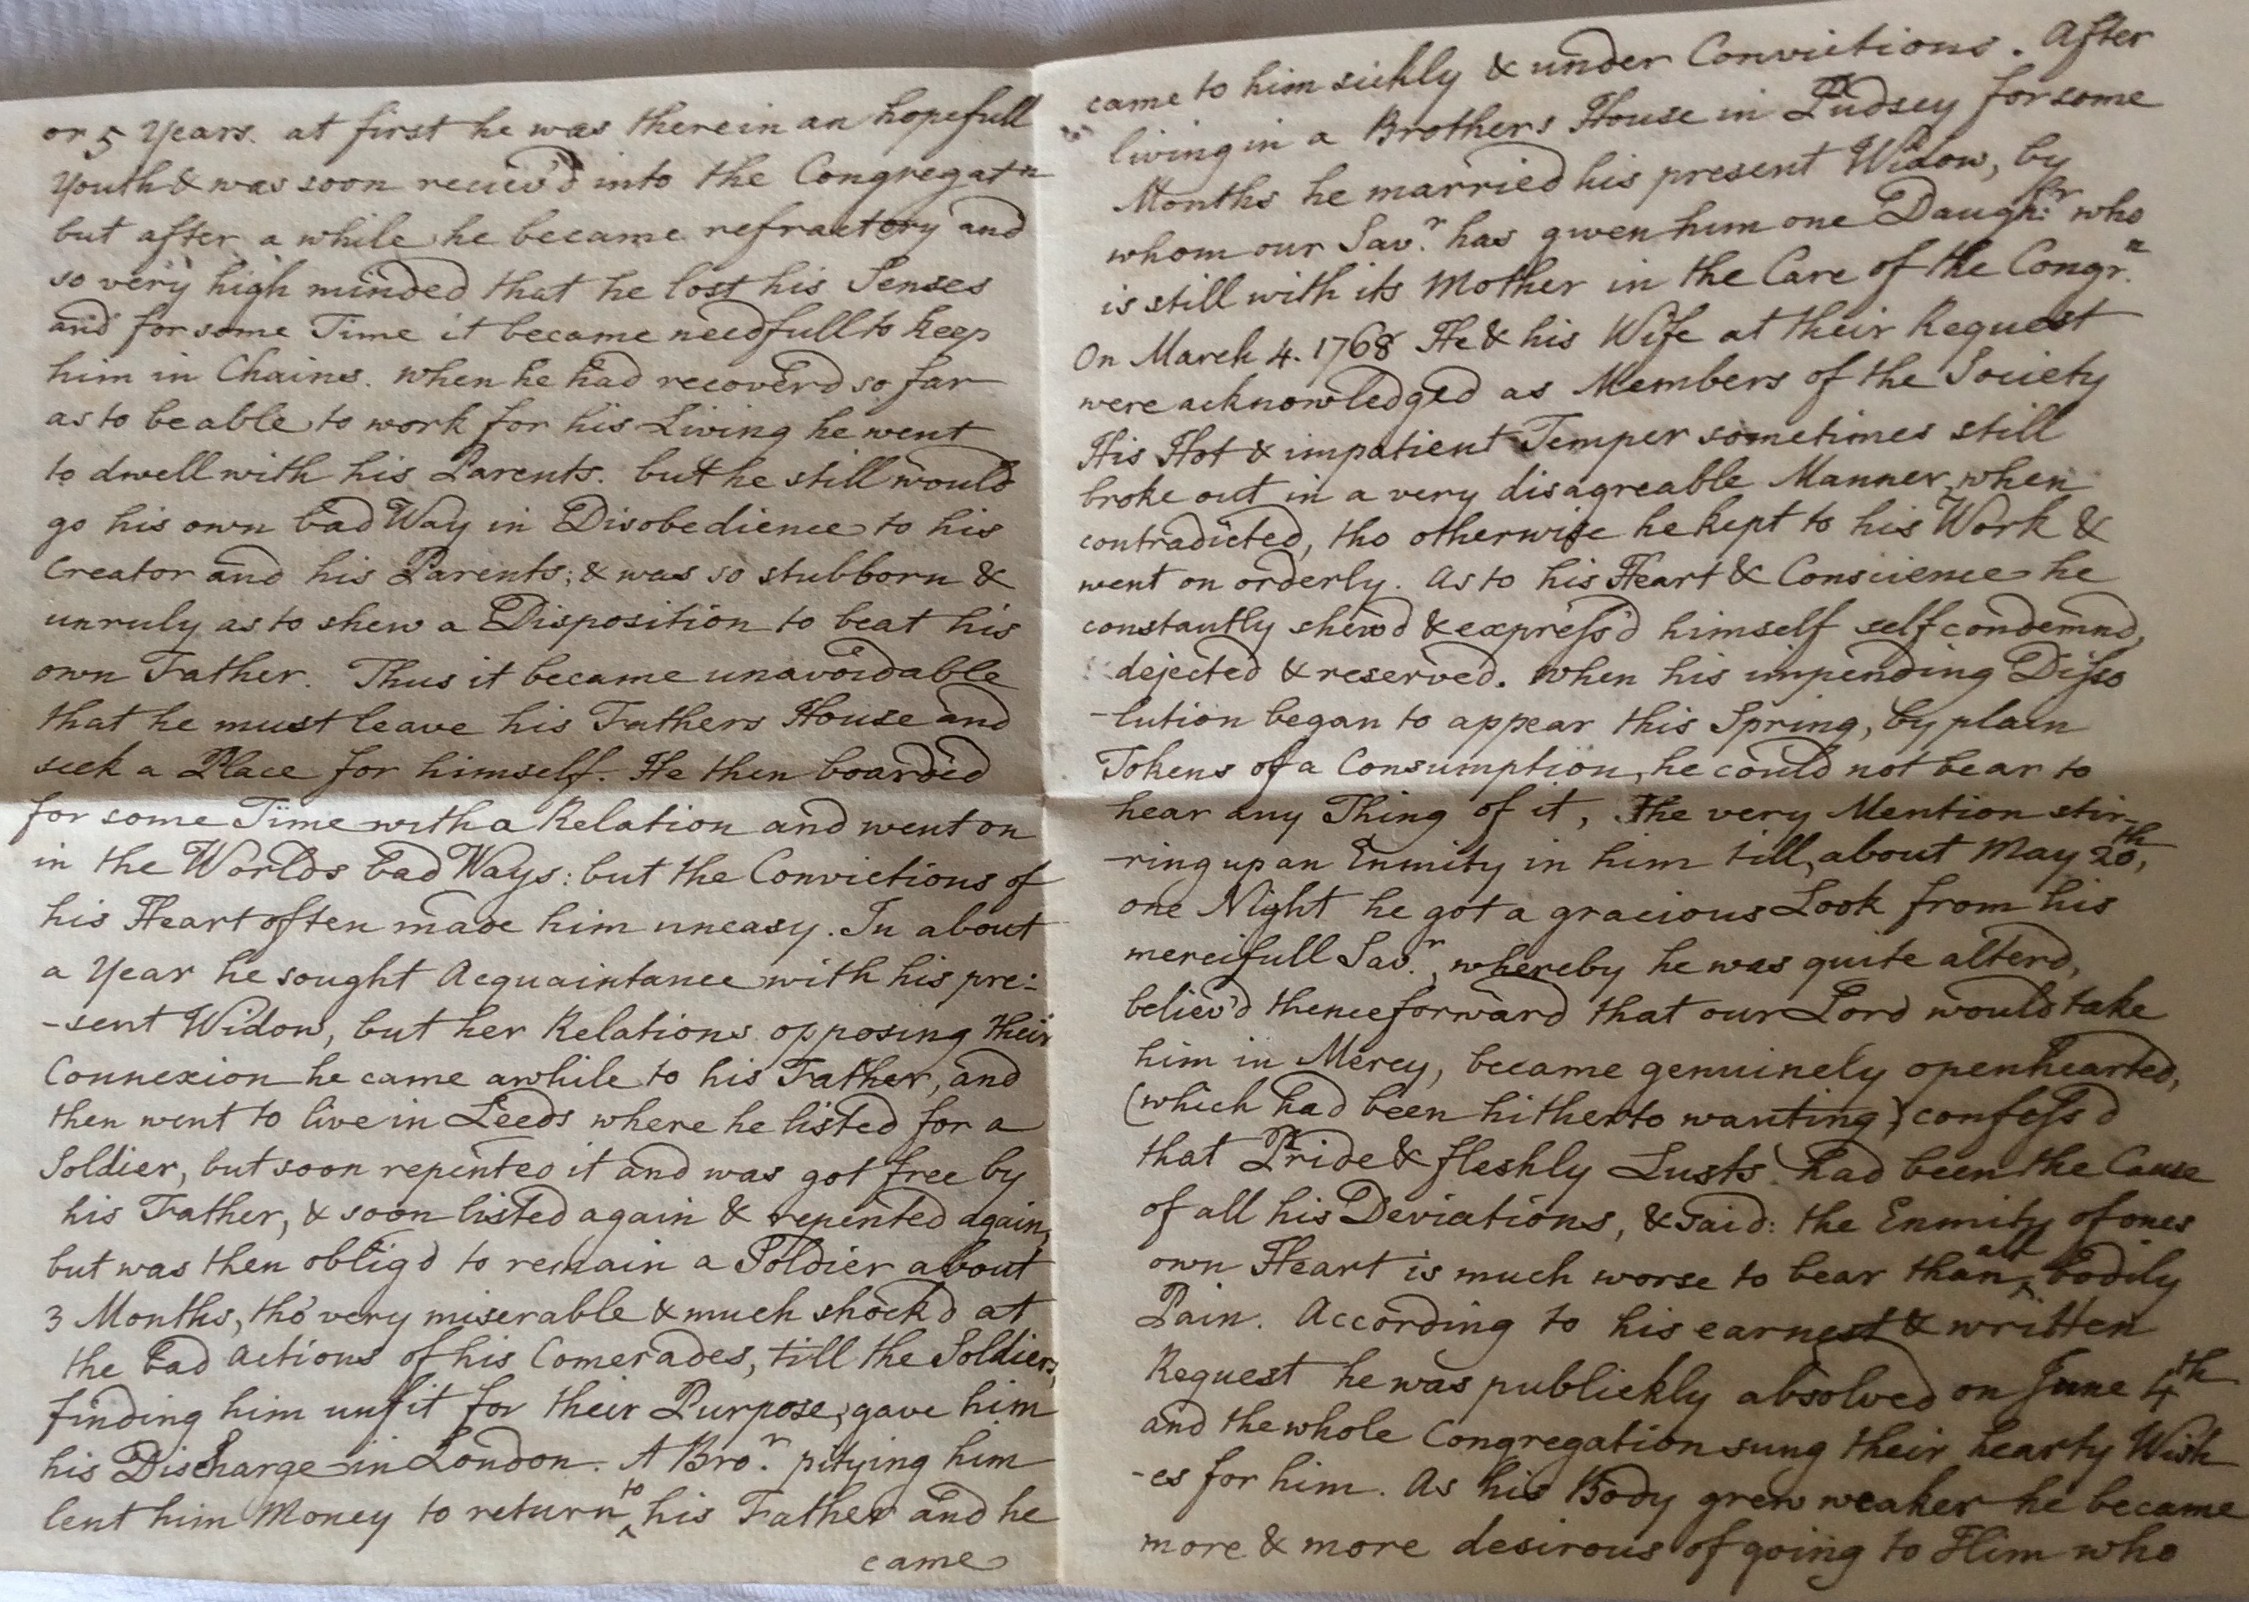 or 5 Years. at first he was therein an hopefull
Youth & was soon reciev'd into the Congregatn
but after a while he became refractory and
so very high minded that he lost his Senses
and for some Time it became needfull to keep
him in Chains. when he had recover'd so far
as to be able to work for his Living he went
to dwell with his Parents. but he still would
go his own bad Way in Disobedience to his
Creator and his Parents; & was so stubborn &
unruly as to shew a Disposition to beat his
own Father. Thus it became unavoidable
that he must leave his Fathers House and
seek a Place for himself. He then boarded
for some Time with a Relation and went on
in the Worlds bad Ways: but the Convictions of
his Heart often made him uneasy. In about
a Year he sought Acquaintance with his pre:
-sent Widow, but her Relations opposing their
Connexion he came awhile to his Father, and
then went to live in Leeds where he listed for a
Soldier, but soon repented it and was got free by
his Father, & soon listed again & repented again,
but was then oblig'd to remain a Soldier about
3 Months, tho' very miserable & much shock'd at
the bad Actions of his Comerades, till the Soldiers,
finding him unfit for their Purpose, gave him
his Discharge in London. A Bro.r pitying him
lent him Money to return to his Father and he
came
came to him sickly & under Convictions. After
living in a Brothers House in Pudsey for some
Months he married his present Widow, by
whom our Sav.r has given him one Daugh:r who
is still with its Mother in the Care of the Congr.n
On March 4. 1768 He & his Wife at their Request
were acknowledged as Members of the Society
His Hot & impatient Temper sometimes still
broke out in a very disagreable Manner, when
contradicted, tho otherwise he kept to his Work &
went on orderly. As to his Heart & Conscience he
constantly shew'd & express'd himself selfcondemnd,
dejected & reserved. When his impending Disso
-lution began to appear this Spring, by plain
Tokens of a Consumption, he could not bear to
hear any Thing of it, the very Mention stir-
-ring up an Enmity in him till, about May 20th,
one Night he got a gracious Look from his
mercifull Sav.r, whereby he was quite alterd,
believ'd thenceforward that our Lord would take
him in Mercy, became genuinely openhearted,
(which had been hitherto wanting) confess'd
that Pride & fleshly Lusts had been the Cause
of all his Deviations, & said: the Enmity of ones
own Heart is much worse to bear than all bodily
Pain. According to his earnest & written
Request he was publickly absolved on June 4th
and the whole Congregation sung their hearty Wish
-es for him. As his Body grew weaker he became
more & more desirous of going to Him who